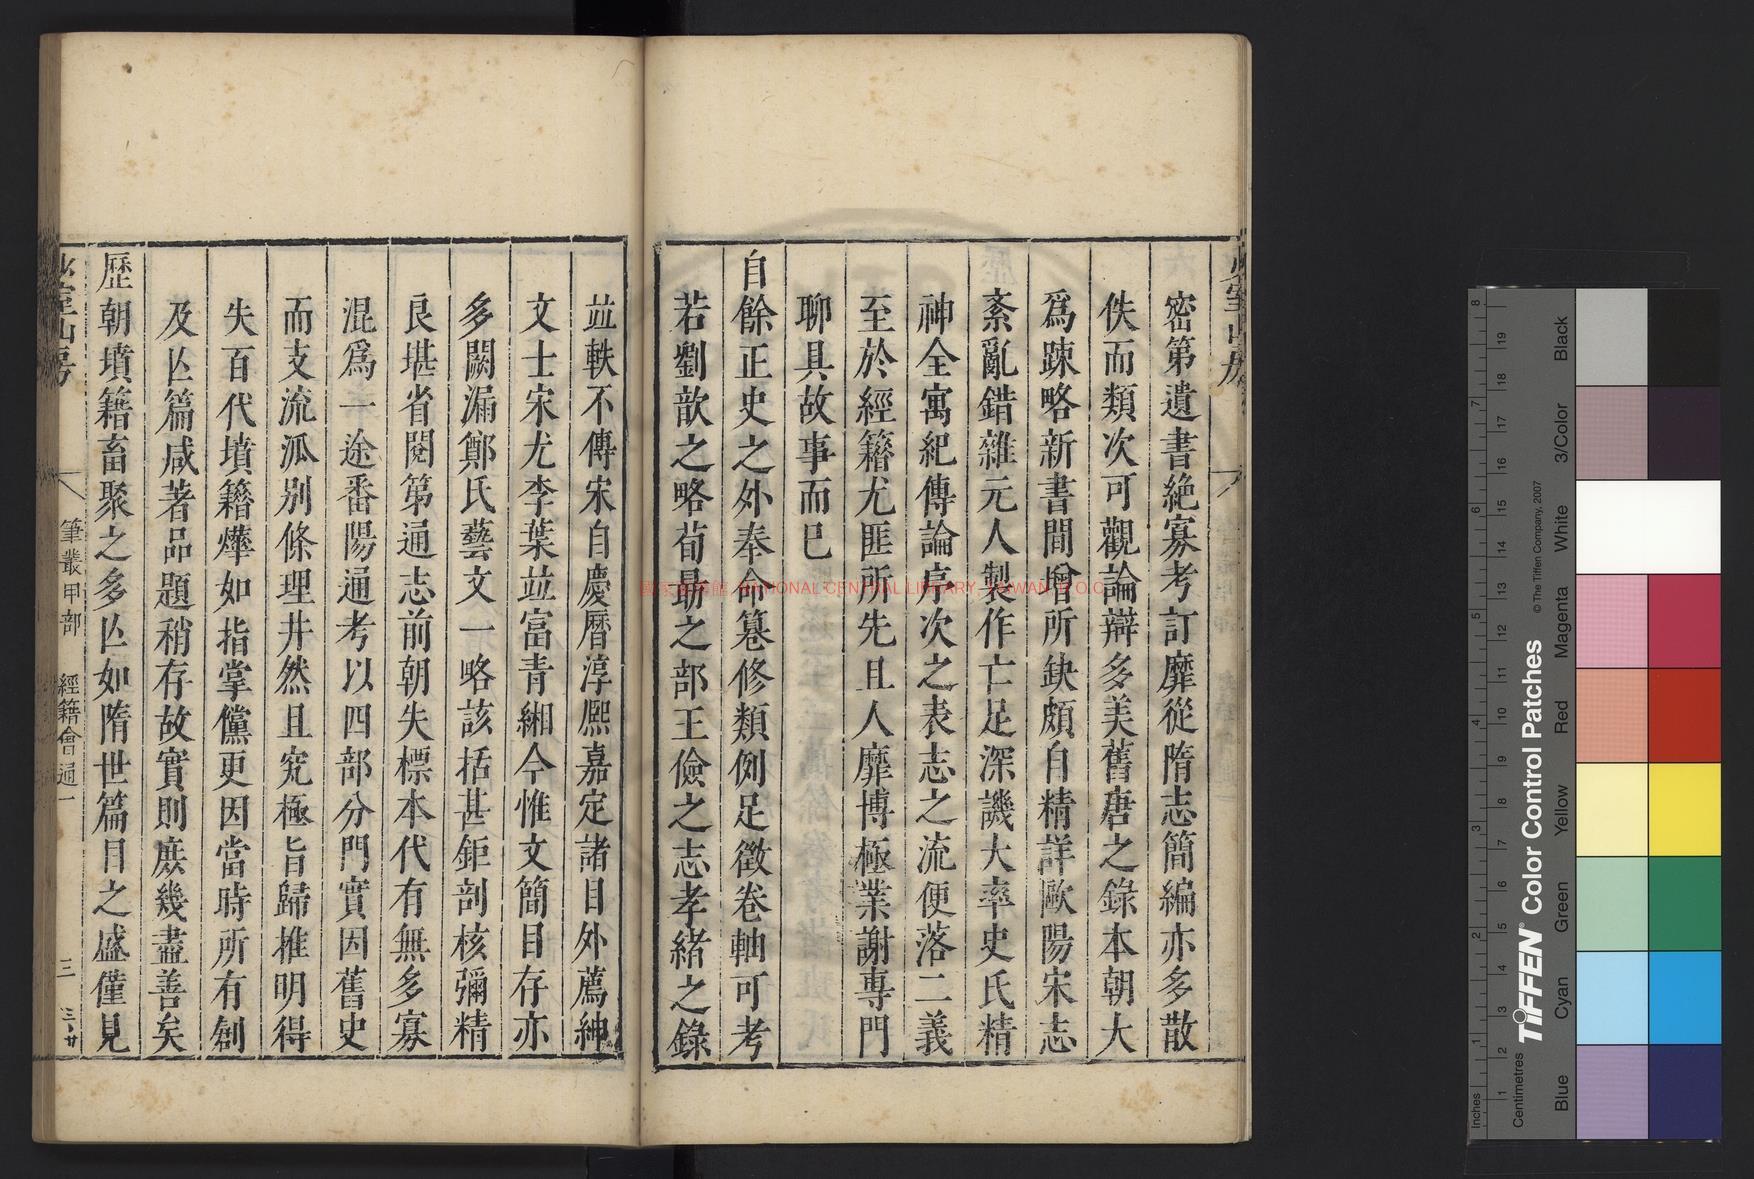 密第遺書絶寡考訂靡從隋志簡編亦多散
佚而類次可觀論辯多美舊唐之錄本朝大
爲踈略新書間增所缺頗自精詳歐陽宋志
紊亂錯雜元人製作亡足深譏大率史氏精
神全寓紀傳論序次之表志之流便落二義
至於經籍尤匪所先且人靡博極業謝專門
聊具故事而巳
自餘正史之外奉命篡修類例足徵卷軸可考
若劉歆之略荀勗之部王儉之志孝緒之錄
並軼不傳宋自慶曆淳熈嘉定諸目外薦紳
文士宋尤李葉並富青緗今惟文簡目存亦
多闕漏鄭氏藝文一略該括甚鉅剖核彌精
良堪省閱第通志前朝失標本代有無多寡
混爲一途番陽通考以四部分門實因舊史
而支流派別條理井然且究極旨歸推明得
失百代墳籍燁如指掌儻更因當時所有創
及亾篇咸著品題稍存故實則庶幾盡善矣
歷朝墳籍畜聚之多亾如隋世篇目之盛僅見
筆叢甲部 經籍會通一
三
國家圖書館, NATIONAL CENTRAL LIBRARY, TAIWAN, R.O.C
Inches
Centimetres
TIFFEN® Color Control Patches
© The Tiffen Company, 2007
Blue
Cyan
Green
Yellow
Red
Magenta
White
3/Color
Black